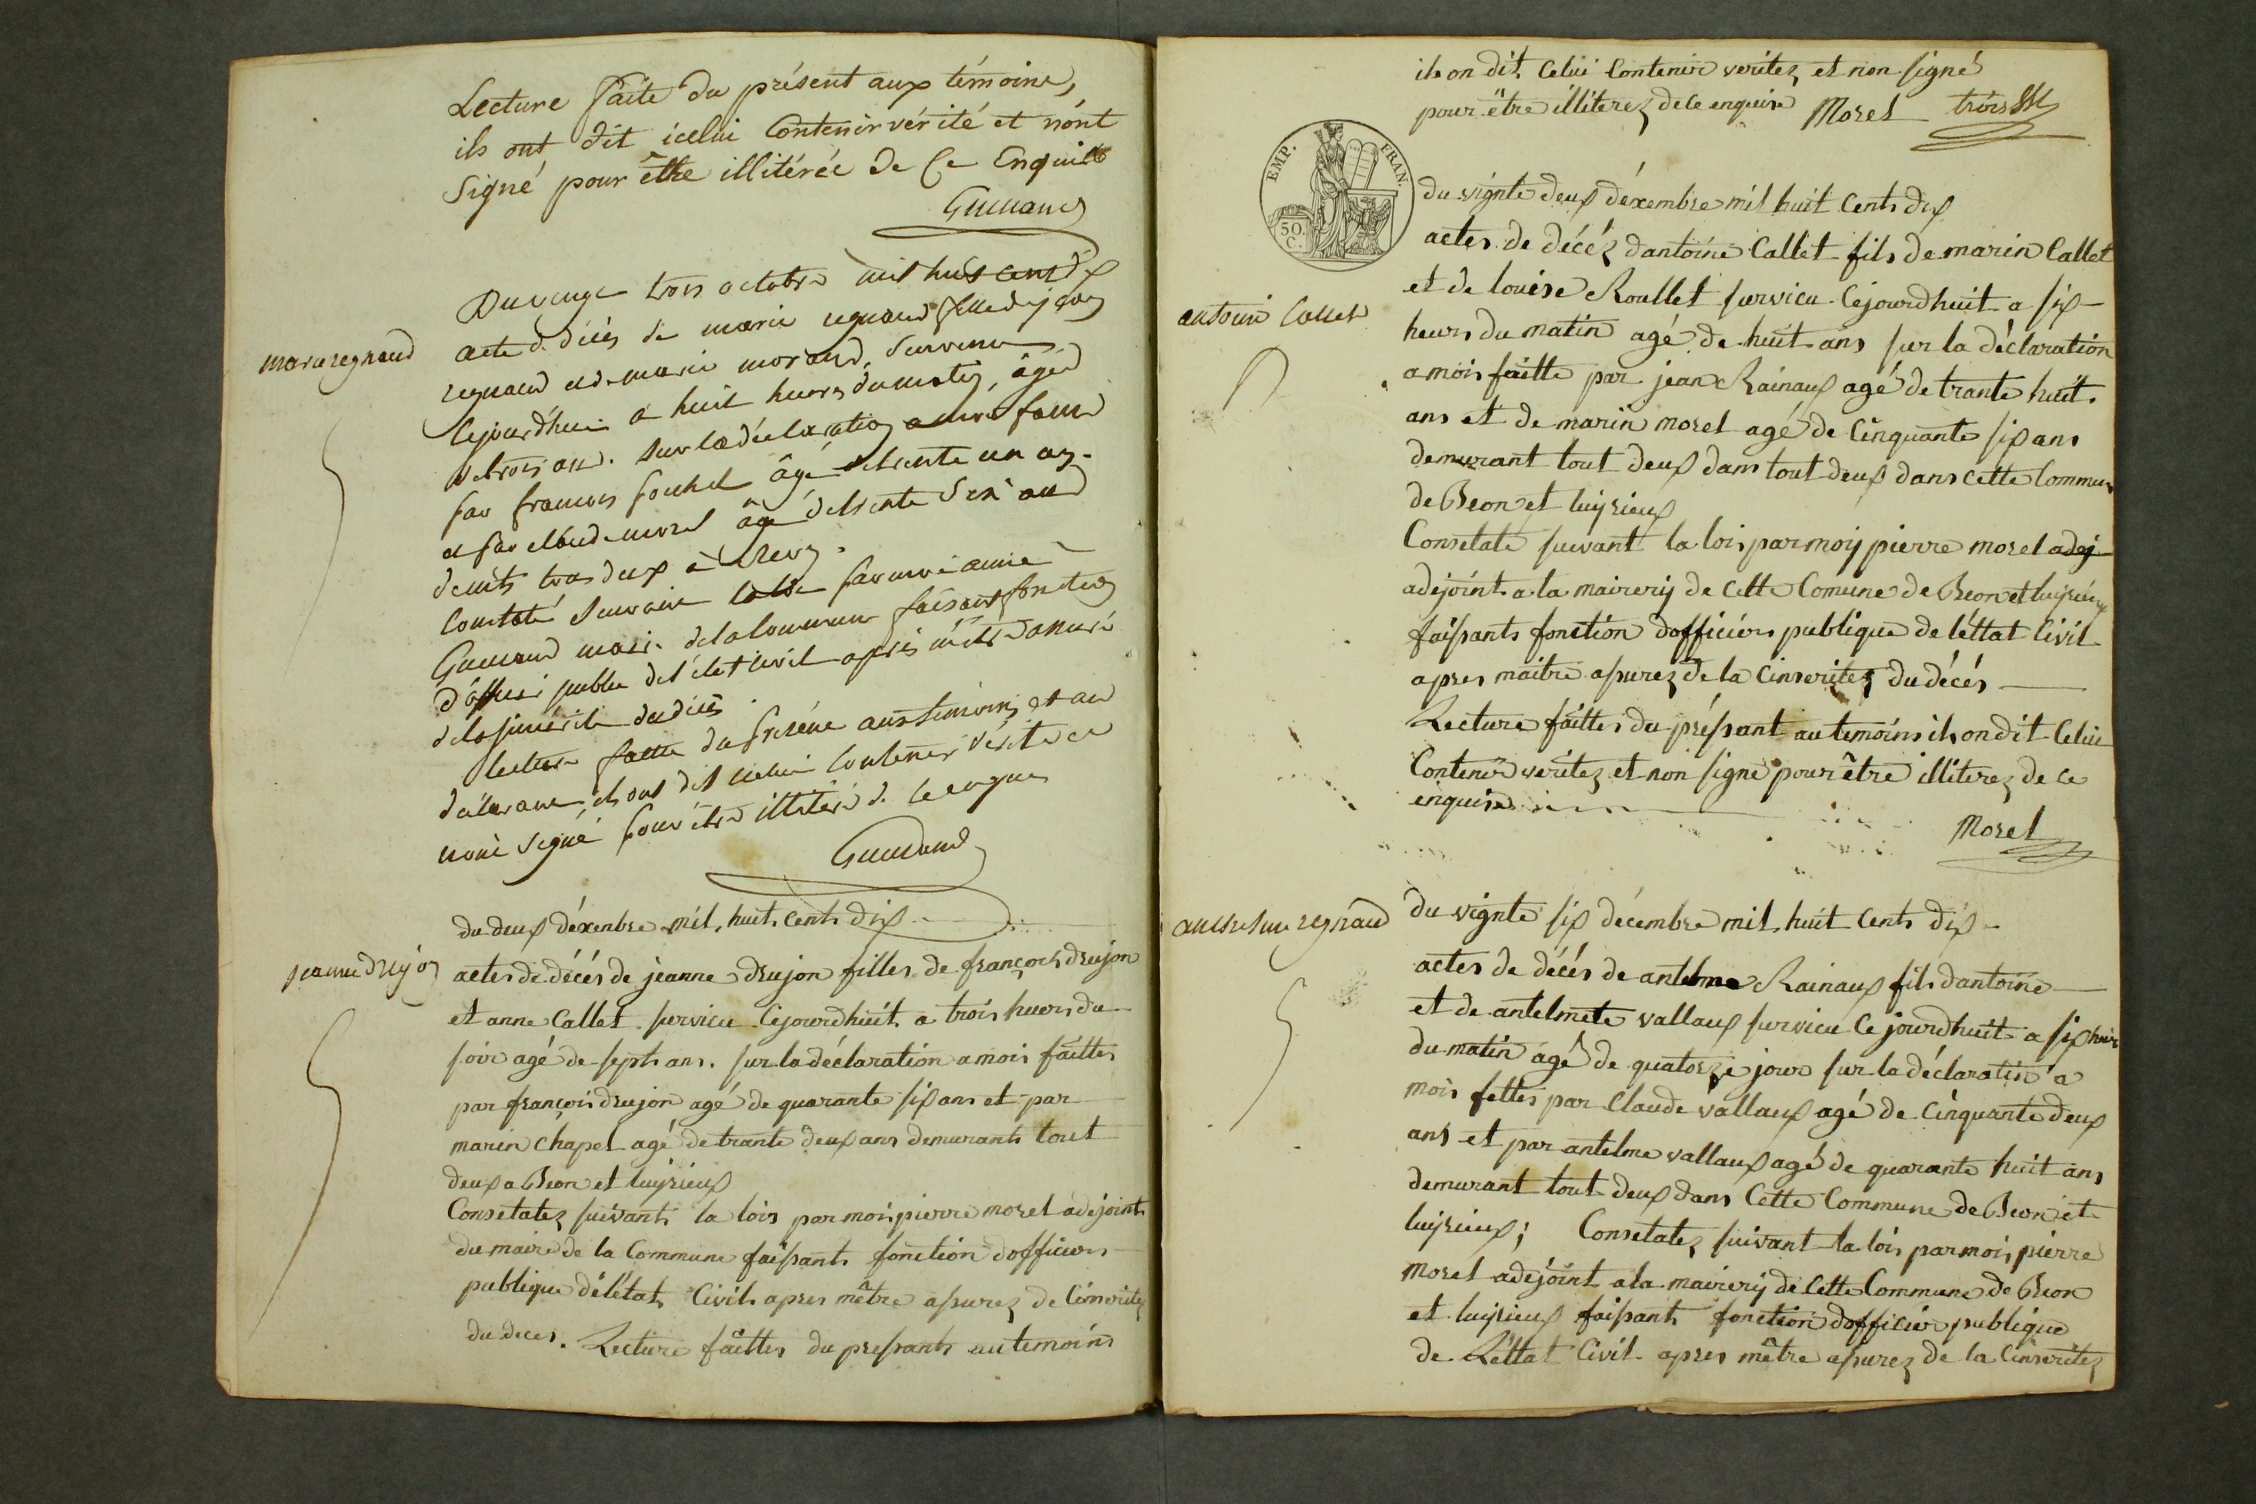 Lecture faite du présent aux témoins,
ils ont dit icelui Contenir vérité et nónt
Signé pour être illitérée de Ce Enquis
Guilland
Du vengt trois octobre mil huit cent dix
marie regnaud
acte d. décès de marie regnaud fille de jean
regnaud et de marie morand, Survenu
Cejourdhui a huit heures du matin, âgée
de trois ans. Sur la déclaration a moi faite
par francois fouhel âgé de trente un an.
et par claude morel âgé de trente Six ans
deux à
Constaté Suivant la loi par moi
maire de la commune faisant fonction
d'officier public de l'état civil après m'être assuré
de la sincérité du décès
lecture faitte du présent aux temoins et au
déclarant, ils ont dit icelui Contenir vérité et
non signé pour être illitéré d. ce enquis
Guilland
du deux déxenbre mil, huit, cents dix
jeanne drujon
actes de décés de jeanne drujon filles de françois drujon
et anne Callet survicu Cejourdhuit a trois huers du
soir agé de septs ans. sur la déclaration a mois faittes
par françois drujon agé de quarante six ans et par
marin chapel agé de trante deux ans demurants tout
deux a Beon et luyrieux
Consetatez suivants la lois par mois pierre morel adejoint
du maire de la Commune faissants fonction dofficiers
publique delétat, Civils apres mêtre assurez de Cinseritez
du deces. Lecture faittes du pressants au temoins
ils on dit, Celui Contenire veritez et non signé
pour être illiterez de ce enquire Morel trois
EMP. FRAN.
50. C.
du vignte deux déxembre mil huit Cents dix
actes de décéz dantoine Callet fils de marin Callet
et de louise Roullet survicu Cejourdhuit a six
antoine Callet
heurs du matin agé de huit ans sur la déclaration
a mois faitte par jean Rainaux agé de trante huit
ans et de marin morel agé de Cinquante six ans
demurant tout deux dans tout deux dans cette Commune
de Beon et luyrieux
Consetaté suivant la lois par moy pierre morel adej
adejoint a la mairery de Cette Comune de Beon et luyrieux
faissants fonction dofficiers publique de léttat Civil
apres maitre assurez de la Cinseritez du décés
Lecture faittes du préssant au temoins ils on dit Celui
Contenir veritez et non signe pour être illiterez de ce
enquire
Morel
antelme regnaud
du vignte six décembre mil, huit Cents dix
actes de décés de antelme Rainaux fils dantoine
et de antelmete vallaux survicu Ce jourdhuit a six huir
du matin agé de quatorze jours sur la déclaration a
mois fettes par Claude vallaux agé de Cinquante deux
ans et par antelme vallaux agé de quarante huit ans
demurant tout deux dans Cette Commune de Beon et
luyrieux; Consetatez suivant la lois par mois, pierre
Morel adejoint a la mairery de Cette Commune de Beon
et luyrieux faissants fonction dofficier publique
de Léttat Civil. apres mêtre assurez de la Cinseritez